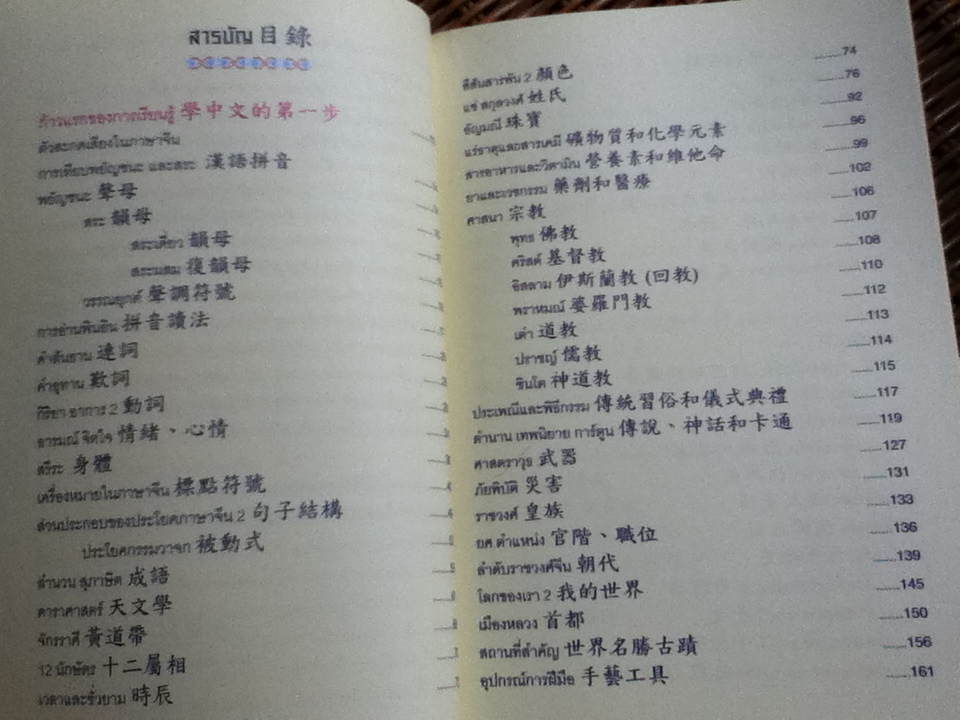 สารบัญ 目錄
ก้าวแรกของการเรียนรู้ 學中文的第一步
ตัวสะกดเสียงในภาษาจีน
การเทียบพยัญชนะ และสระ 漢語拼音
พยัญชนะ 聲母
สระ 韻母
สระเดี่ยว 韻母
สระผสม 復韻母
วรรณยุกต์ 聲調符號
การอ่านพินอิน 拼音讀法
คำสันธาน 連詞
คำอุทาน 歎詞
กิริยา อาการ 2 動詞
อารมณ์ จิตใจ 情緒、心情
สรีระ 身體
เครื่องหมายในภาษาจีน 標點符號
ส่วนประกอบของประโยคภาษาจีน 2 句子結構
ประโยคกรรมวาจก 被動式
สำนวน สุภาษิต 成語
ดาราศาสตร์ 天文學
จักรราศี 黃道帶
12 นักษัตร 十二屬相
เวลาและชั่วยาม 時辰
สีสันสารพัน 2 顏色 ........74
แซ่ สกุลวงศ์ 姓氏 ........76
อัญมณี 珠寶 ........92
แร่ธาตุและสารเคมี 礦物質和化學元素 ........96
สารอาหารและวิตามิน 營養素和維他命 ........99
ยาและเวชกรรม 藥劑和醫療 ........102
ศาสนา 宗教 ........106
พุทธ 佛教 ........107
คริสต์ 基督教 ........108
อิสลาม 伊斯蘭教 (回教) ........110
พราหมณ์ 婆羅門教 ........112
เต๋า 道教 ........113
ปราชญ์ 儒教 ........114
ชินโต 神道教 ........115
ประเพณีและพิธีกรรม 傳統習俗和儀式典禮 ........117
ตำนาน เทพนิยาย การ์ตูน 傳說、神話和卡通 ........119
ศาสตราวุธ 武器 ........127
ภัยพิบัติ 災害 ........131
ราชวงศ์ 皇族 ........133
ยศ ตำแหน่ง 官階、職位 ........136
ลำดับราชวงศ์จีน 朝代 ........139
โลกของเรา 2 我的世界 ........145
เมืองหลวง 首都 ........150
สถานที่สำคัญ 世界名勝古蹟 ........156
อุปกรณ์การฝีมือ 手藝工具 ........161